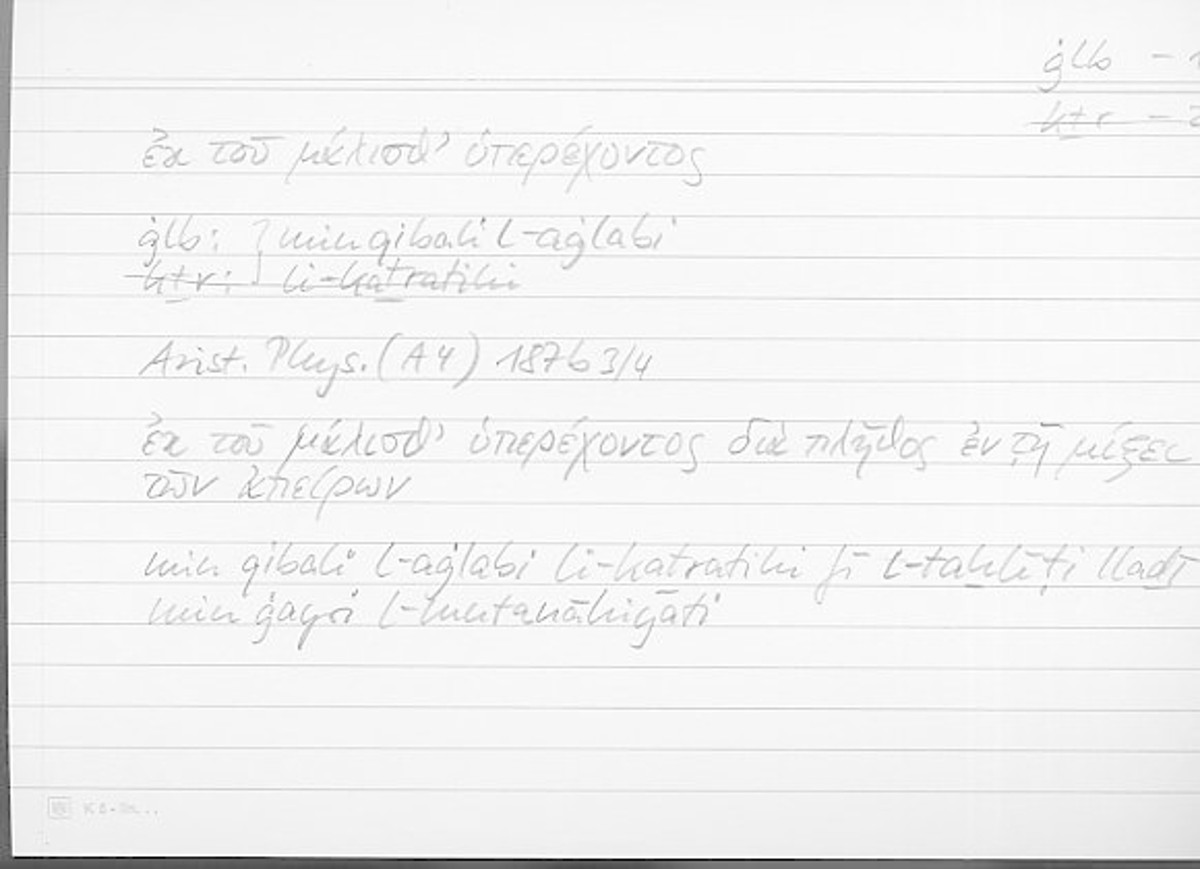 ġlb –
k̲t̲r –
ἐκ τοῦ μάλισθ' ὑπερέχοντος
ġlb: } min qibali l-aġlabi
kṯr: } li-kaṯratihi
Arist. Phys. (A4) 187b3/4
ἐκ τοῦ μάλισθ' ὑπερέχοντος διὰ πλῆθος ἐν τῇ μίξει
τῶν ἀπείρων
min qibali l-aġlabi li-kaṯratihi fī l-taḫlīṭi llaḏī
min ġayri l-mutanāhiyāti